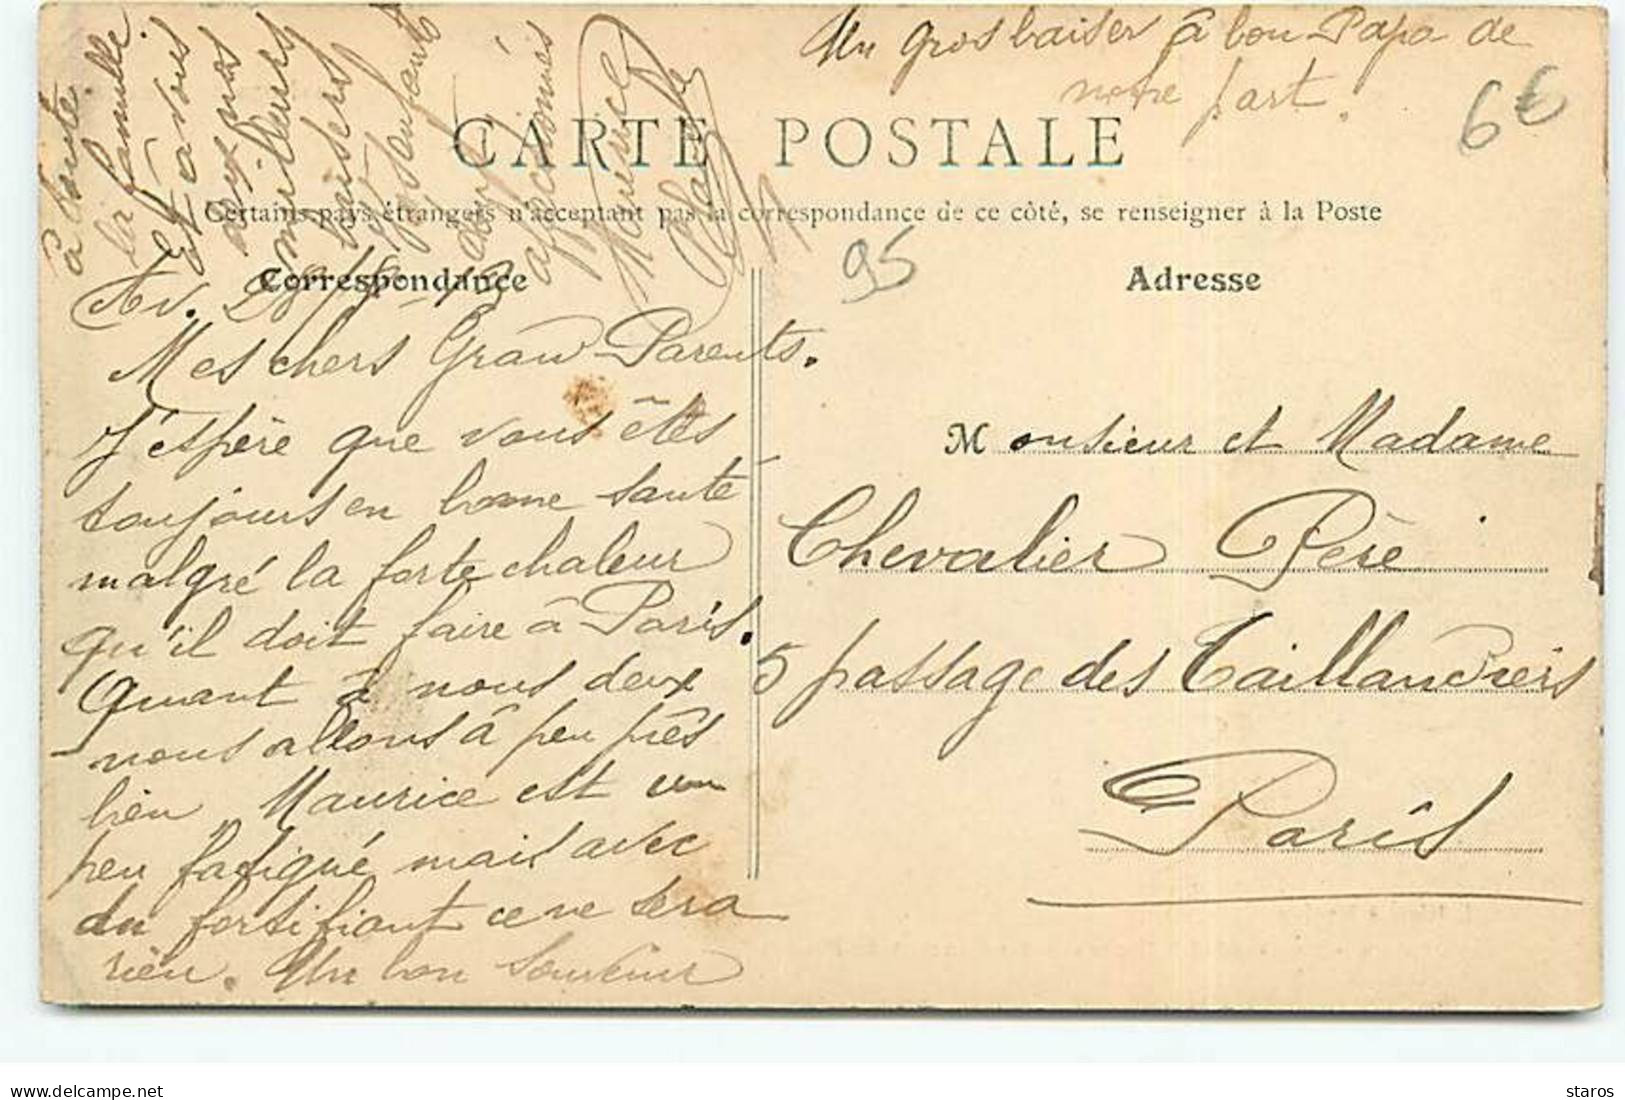 Un gros baiser à bon Papa de
notre part.
6€
CARTE POSTALE
Certains pays étrangers n'acceptant pas la correspondance de ce côté, se renseigner à la Poste
95
Correspondance
Adresse
Mes chers Grand Parents.
J'espère que vous êtes
toujours en bonne santé
malgré la forte chaleur
qu'il doit faire à Paris.
Quant à nous deux
nous allons à peu près
bien Maurice est un
peu fatigué mais avec
du fortifiant ce ne sera
rien. Un bon souvenir
à toute
la famille.
Et à vous
nos
meilleurs
baisers
Vos enfants
affectionnés
Maurice
Monsieur et Madame
Chevalier Père
5 passage des Taillandiers
Paris
delcampe.net
staros